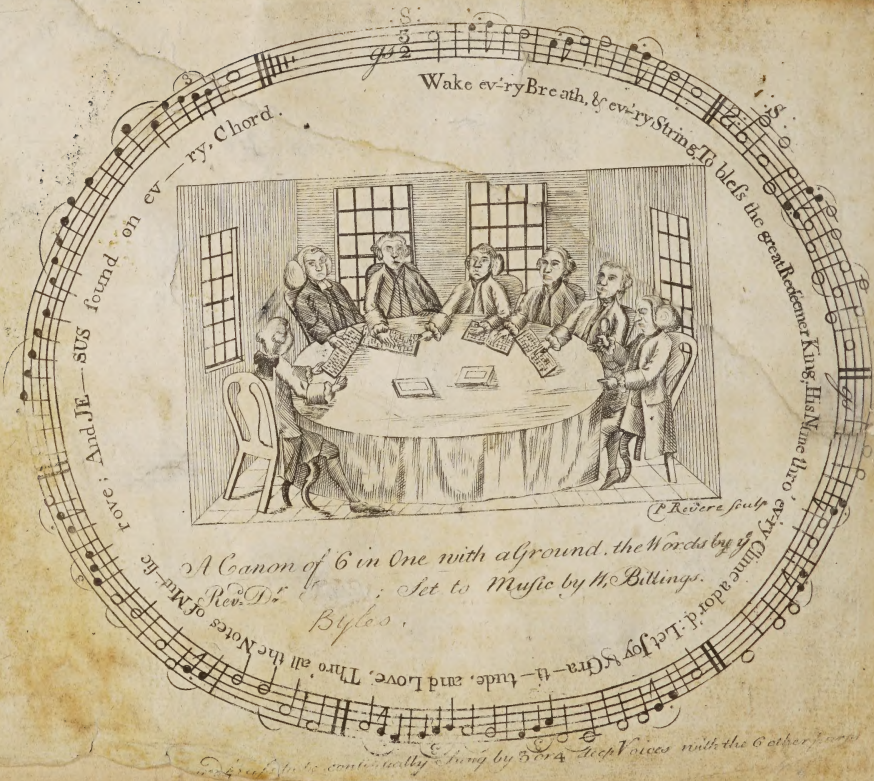 Wake ev'-ry Breath, & ev'-ry String, To bless the great Redeemer King, His Name thro' ev'-ry Clime ador'd: Let Joy & Gra-ti-tude, and Love, Thro' all the Notes of Mu-sic rove; And JE-SUS found on ev-ry, Chord.
P. Revere sculp
A Canon of 6 in One with a Ground. the Words by yͤ
Revᵈ. Dʳ. ; Set to Music by W, Billings.
Byles.
continually Sung by 3 or 4 Deep Voices with the 6 other parts